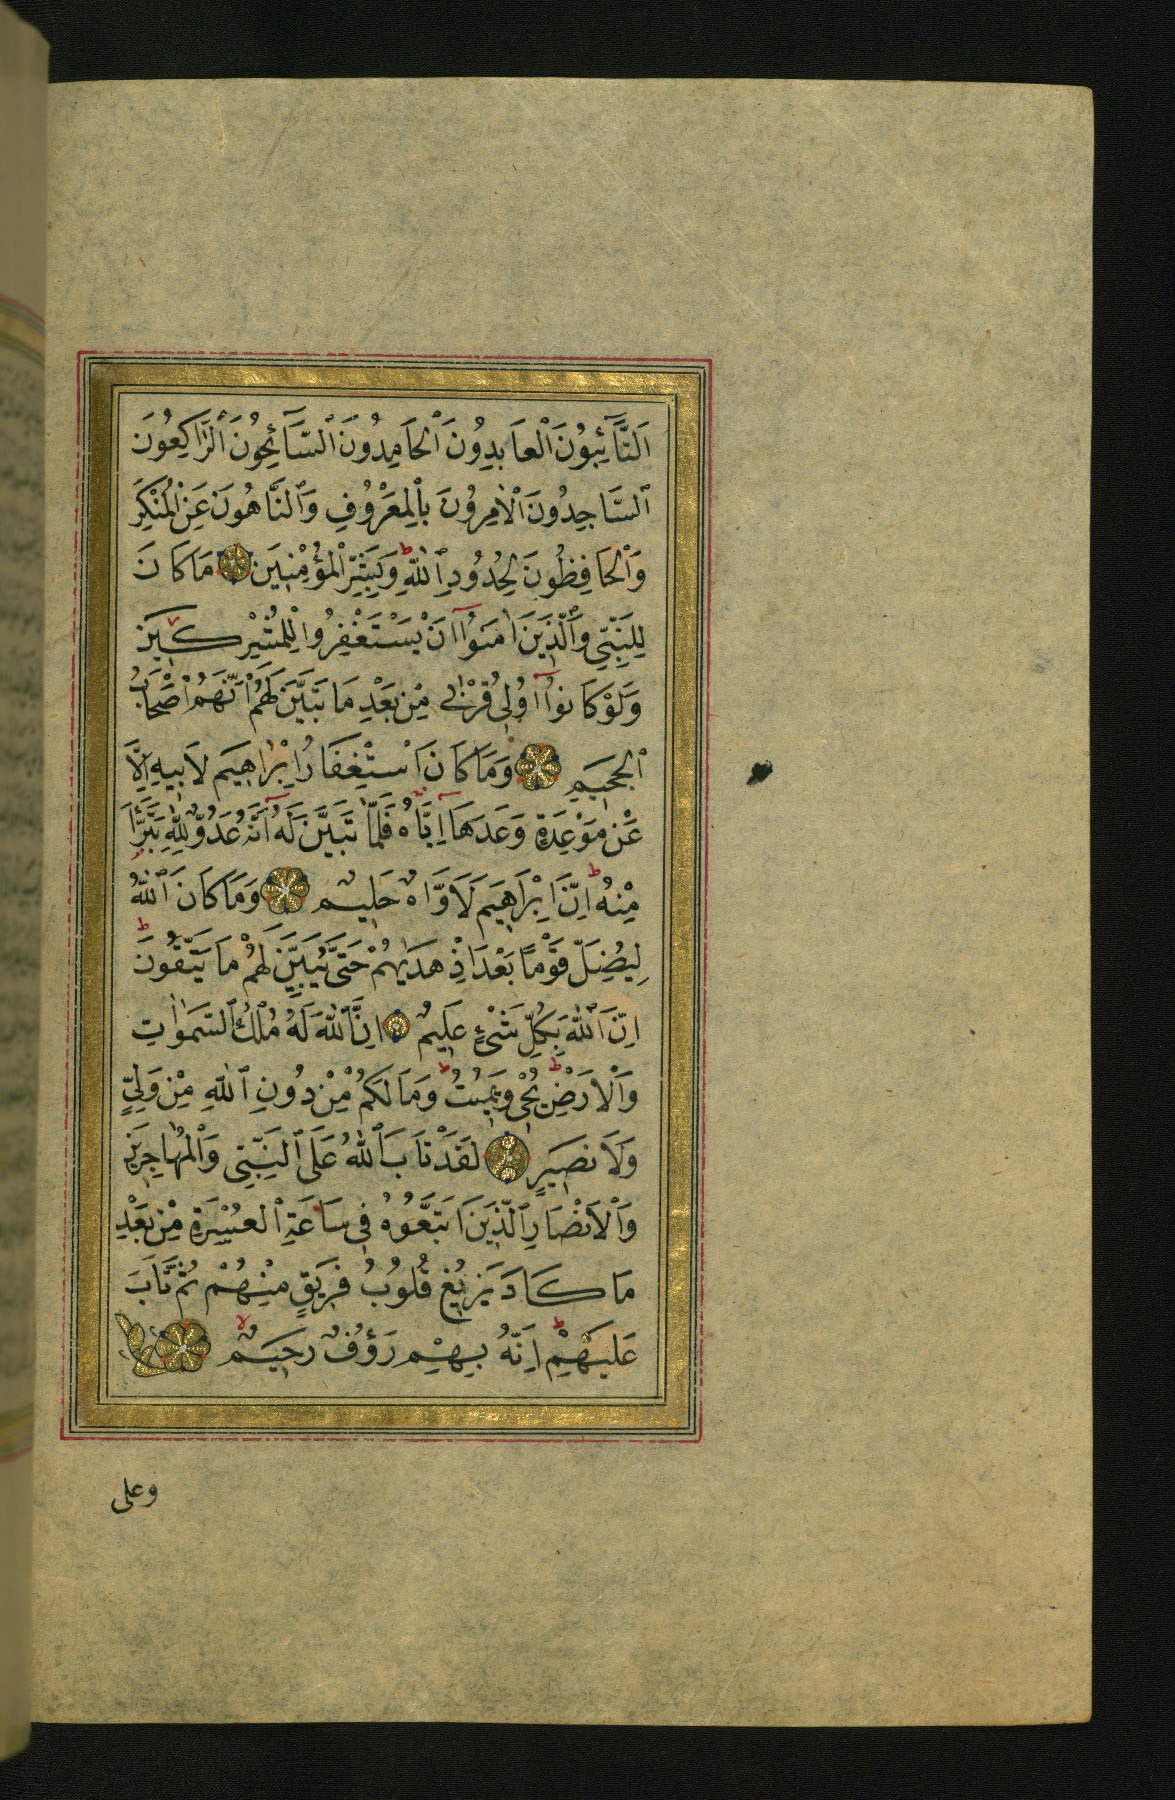 اَلتَّآئِبُونَ ٱلْعَابِدُونَ ٱلْحَامِدُونَ ٱلسَّآئِحُونَ ٱلرَّاكِعُونَ
ٱلسَّاجِدُونَ ٱلْاٰمِرُونَ بِٱلْمَعْرُوفِ وَٱلنَّاهُونَ عَنِ ٱلْمُنْكَرِ
وَٱلْحَافِظُونَ لِحُدُودِ ٱللّٰهِ ط وَبَشِّرِ ٱلْمُؤْمِنِينَ مَا كَانَ
لِلنَّبِيِّ وَٱلَّذِينَ اٰمَنُوٓا اَنْ يَسْتَغْفِرُوا لِلْمُشْرِكِينَ
وَلَوْ كَانُوٓا اُولِى قُرْبٰى مِنْ بَعْدِ مَا تَبَيَّنَ لَهُمْ اَنَّهُمْ اَصْحَابُ
ٱلْجَحِيمِ وَمَا كَانَ ٱسْتِغْفَارُ اِبْرٰهِيمَ لِاَبِيهِ اِلَّا
عَنْ مَوْعِدَةٍ وَعَدَهَآ اِيَّاهُ فَلَمَّا تَبَيَّنَ لَهُٓ اَنَّهُ عَدُوٌّ لِلّٰهِ تَبَرَّاَ
مِنْهُ ط اِنَّ اِبْرٰهِيمَ لَاَوَّاهٌ حَلِيمٌ وَمَا كَانَ ٱللّٰهُ
لِيُضِلَّ قَوْمًا بَعْدَ اِذْ هَدٰيهُمْ حَتّٰى يُبَيِّنَ لَهُمْ مَا يَتَّقُونَ ط
اِنَّ ٱللّٰهَ بِكُلِّ شَىْءٍ عَلِيمٌ اِنَّ ٱللّٰهَ لَهُ مُلْكُ ٱلسَّمٰوٰاتِ
وَٱلْاَرْضِ ط يُحْيِى وَيُمِيتُ ط وَمَا لَكُمْ مِنْ دُونِ ٱللّٰهِ مِنْ وَلِيٍّ
وَلَا نَصِيرٍ لَقَدْ تَابَ ٱللّٰهُ عَلَى ٱلنَّبِيِّ وَٱلْمُهَاجِرِينَ
وَٱلْاَنْصَارِ ٱلَّذِينَ ٱتَّبَعُوهُ فِى سَاعَةِ ٱلْعُسْرَةِ مِنْ بَعْدِ
مَا كَادَ يَزِيغُ قُلُوبُ فَرِيقٍ مِنْهُمْ ثُمَّ تَابَ
عَلَيْهِمْ ط اِنَّهُ بِهِمْ رَؤُفٌ رَحِيمٌ لا
وعلى